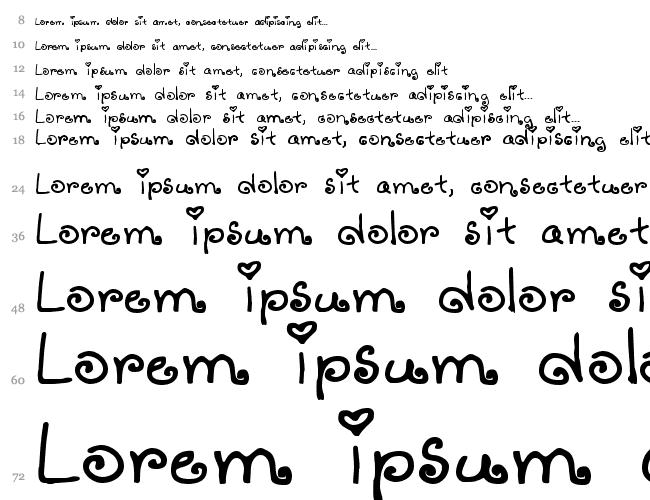 8 Lorem ipsum dolor sit amet, consectetuer adipiscing elit...
10 Lorem ipsum dolor sit amet, consectetuer adipiscing elit...
12 Lorem ipsum dolor sit amet, consectetuer adipiscing elit
14 Lorem ipsum dolor sit amet, consectetuer adipiscing elit...
16 Lorem ipsum dolor sit amet, consectetuer adipiscing elit...
18 Lorem ipsum dolor sit amet, consectetuer adipiscing elit
24 Lorem ipsum dolor sit amet, consectetuer
36 Lorem ipsum dolor sit amet
48 Lorem ipsum dolor si
60 Lorem ipsum dola
72 Lorem ipsum